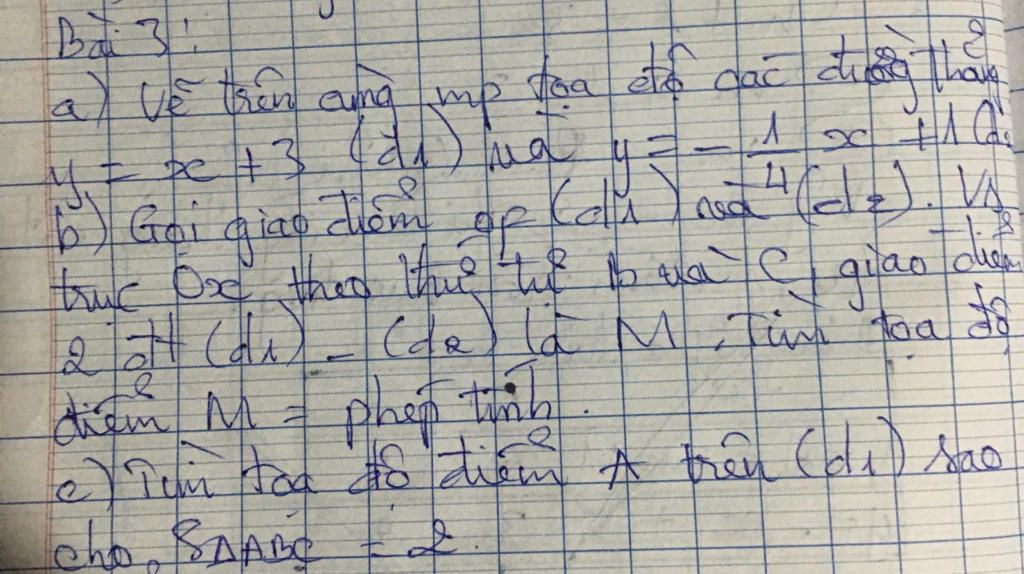 Bài 3:
a) Vẽ trên cùng mp tọa độ các đường thẳng
y = x + 3 (d1) và y = - 1/4 x + 1 (d2
b) Gọi giao điểm of (d1) và (d2). Vs
trục Ox theo thứ tự B và C, giao điểm
2 đt (d1) - (d2) là M. Tìm tọa độ
điểm M = phép tính.
c) Tìm tọa độ điểm A trên (d1) sao
cho SΔABC = 2.